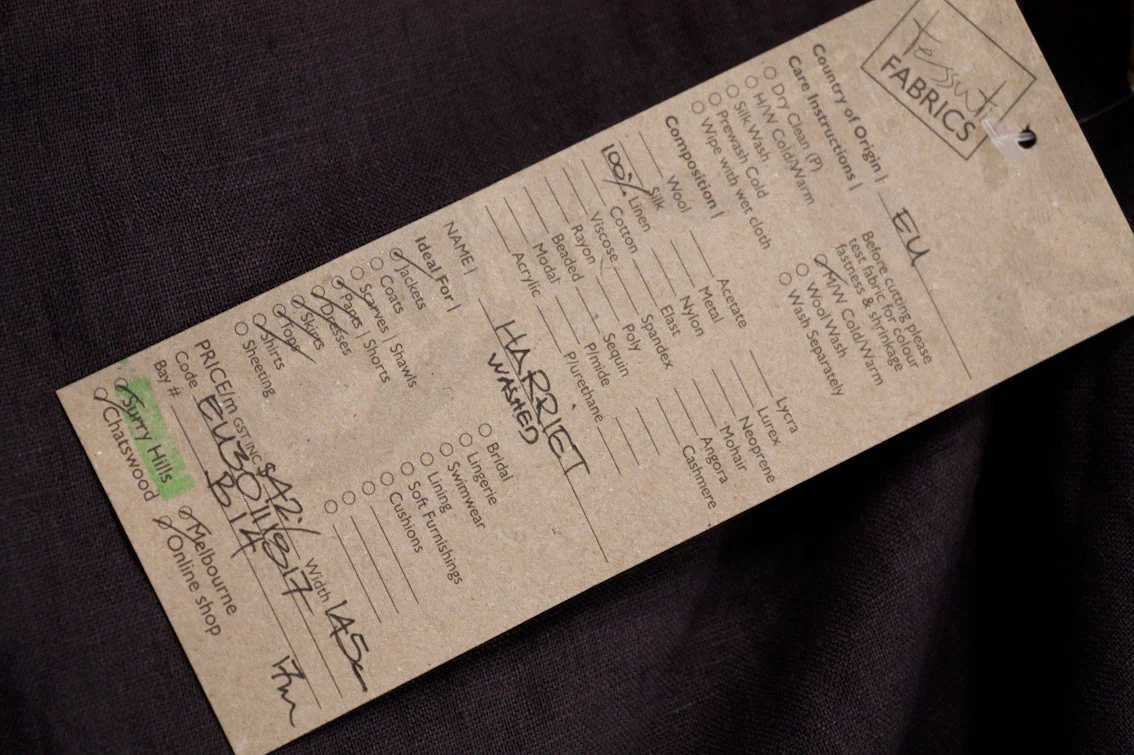 tessuti
FABRICS
Country of Origin | EU
Care Instructions |
Before cutting please
test fabric for colour
fastness & shrinkage
Dry Clean (P)
H/W Cold/Warm
Silk Wash
Prewash Cold
Wipe with wet cloth
M/W Cold/Warm
Wool Wash
Wash Separately
Composition |
Wool
Silk
100% Linen
Cotton
Viscose
Rayon
Beaded
Modal
Acrylic
Acetate
Metal
Nylon
Elast
Spandex
Poly
Sequin
P/mide
P/urethane
Lycra
Lurex
Neoprene
Mohair
Angora
Cashmere
NAME | HARRIET
WASHED
Ideal For |
Jackets
Coats
Scarves | Shawls
Pants | Shorts
Dresses
Skirts
Tops
Shirts
Sheeting
Bridal
Lingerie
Swimwear
Lining
Soft Furnishings
Cushions
PRICE/m GST.INC $42.- Width 145
Code EU3011817
Bay # B14
Surry Hills
Chatswood
Melbourne
Online shop